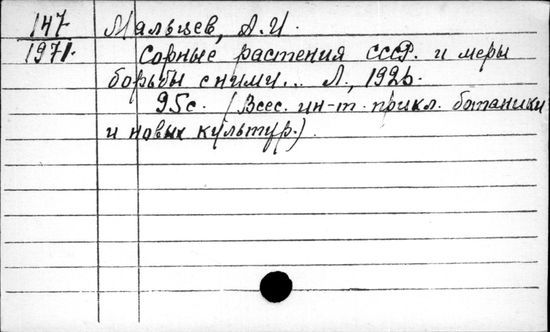 147 Мальцев, А.И.
1971. Сорные растения СССР. и меры
борьбы с ними... Л., 1926.
95с. (Всес. ин-т. прикл. ботаники
и новых культур.)